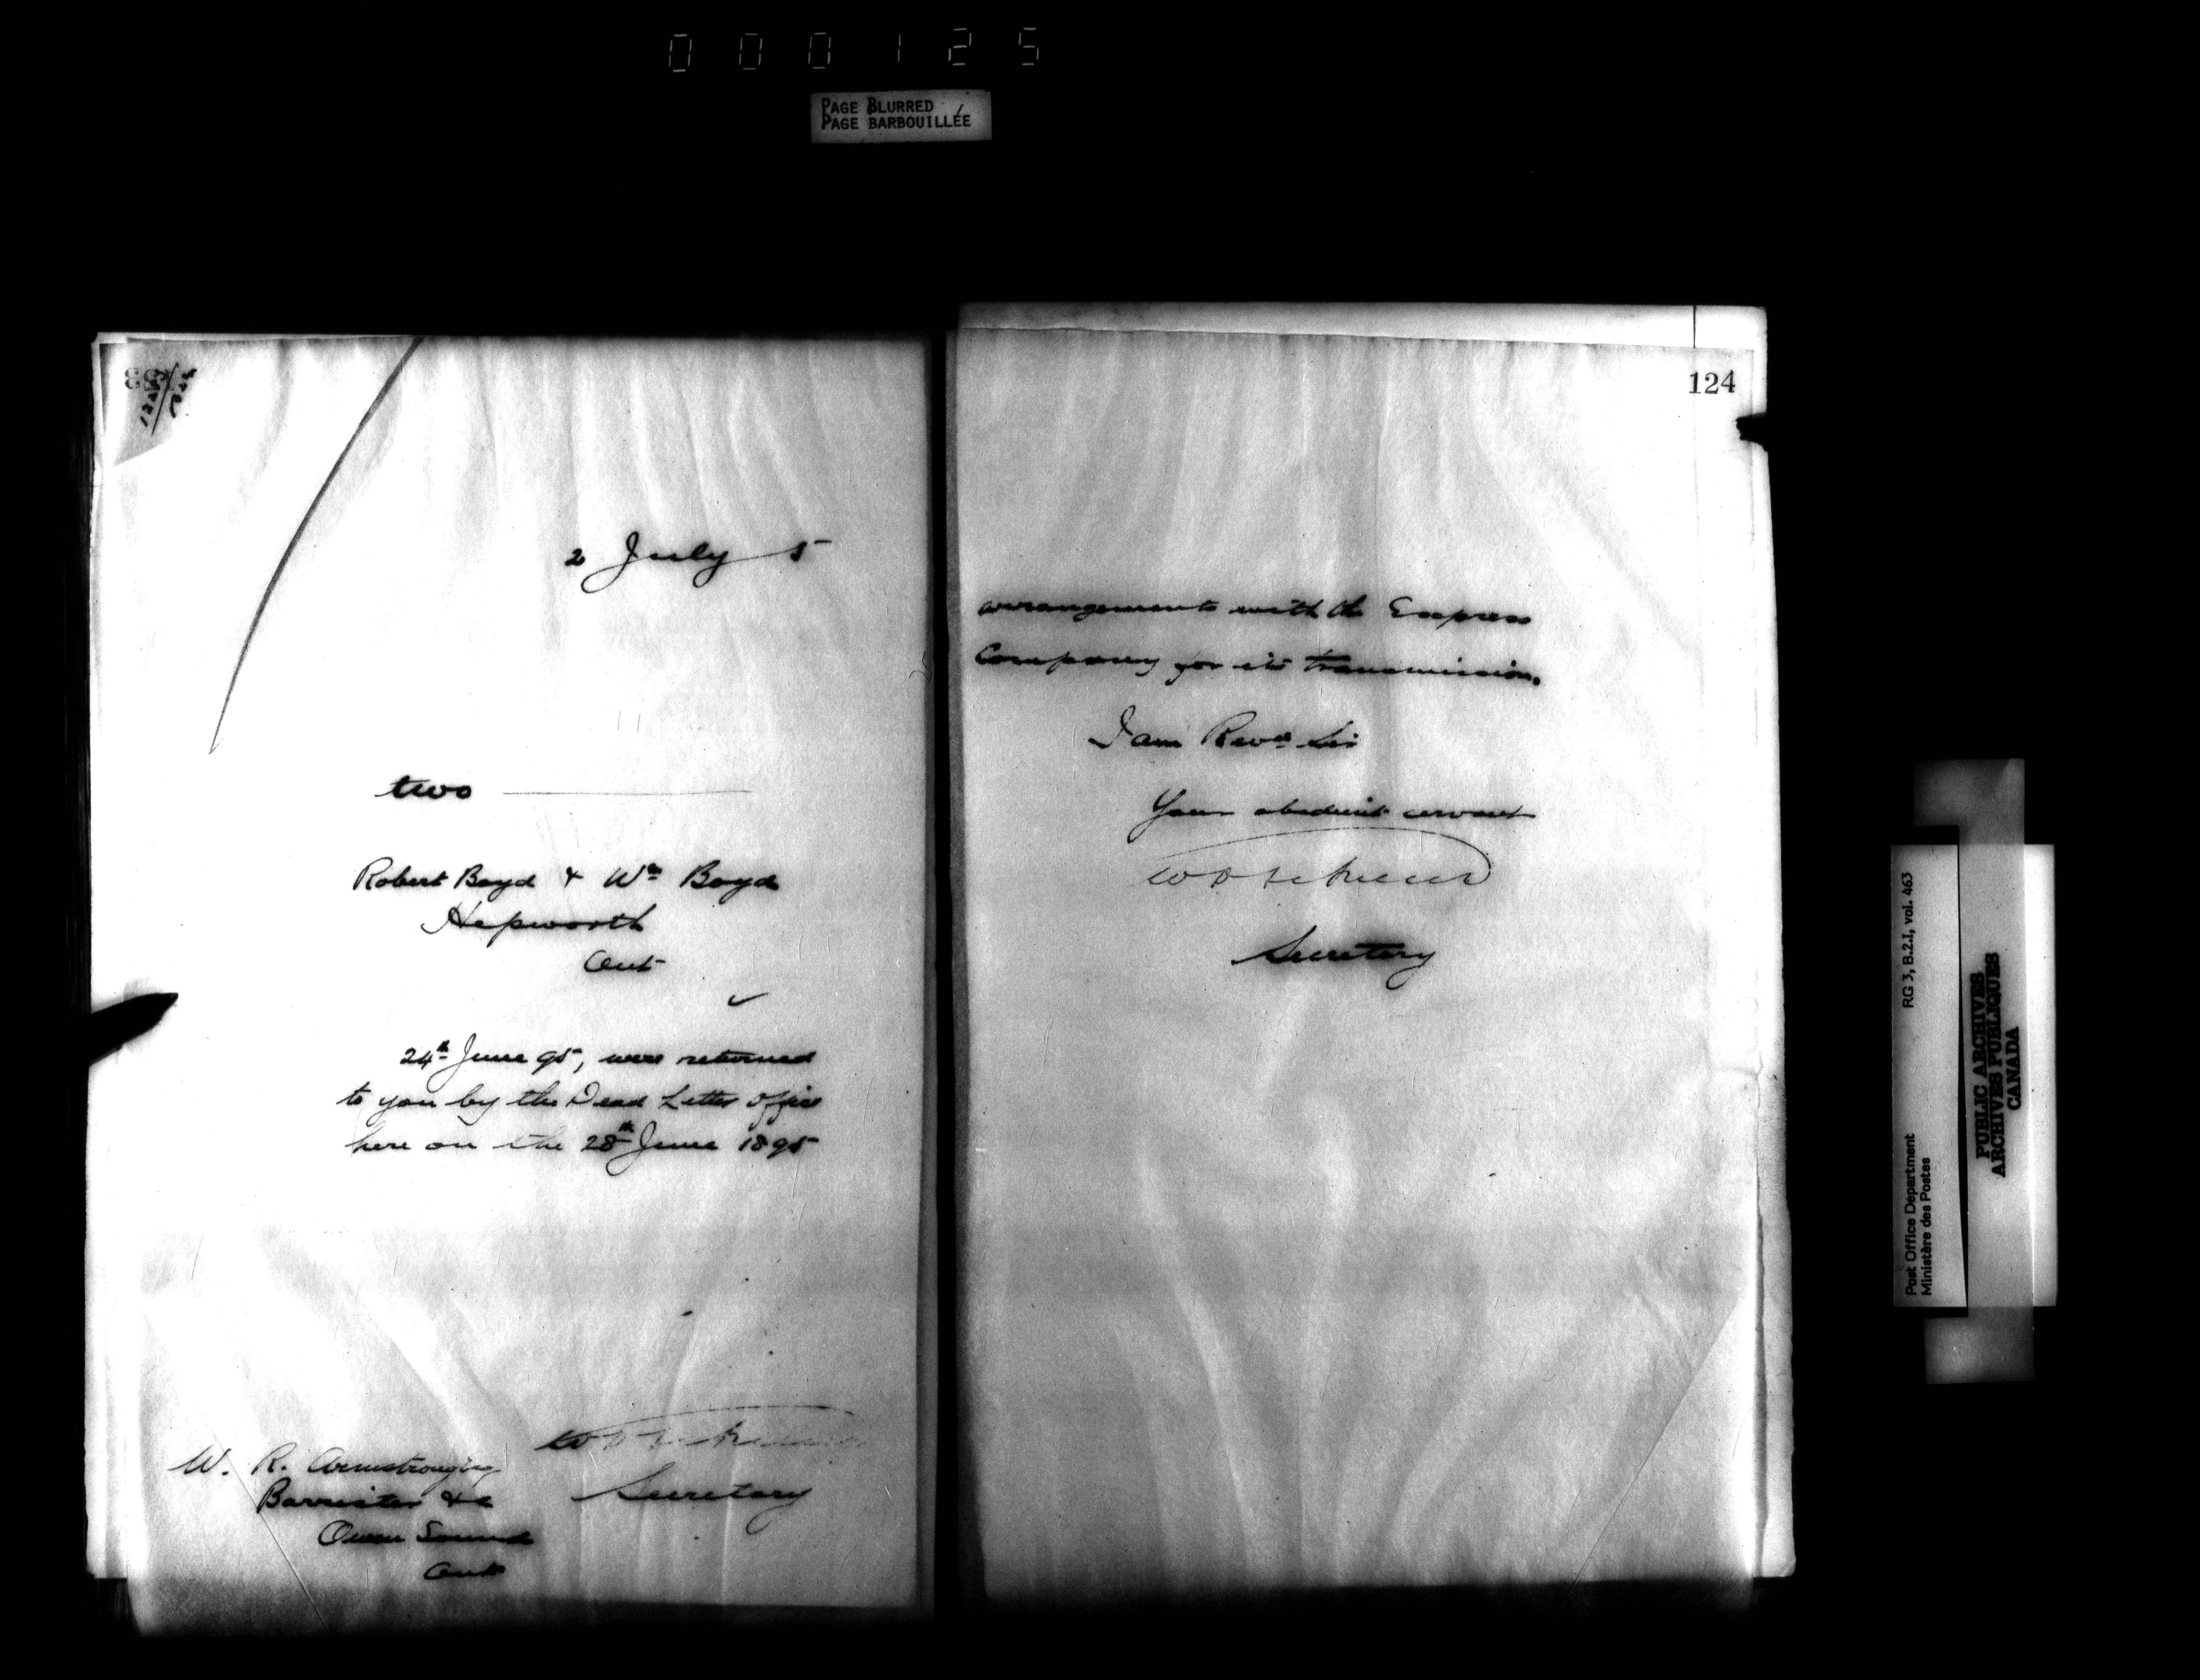 000125
PAGE BLURRED
PAGE BARBOUILLÉE
2 July 5
two
Robert Boyd & Wm Boyd
Hepworth
Ont
24th June 95, were returned
to you by the Dead Letter Office
here on the 28th June 1895
W. R. Armstrong Esq
Barrister &c
Owen Sound
Ont
Secretary
124
arrangements with the Express
Company for its transmission.
I am Revd Sir
Your obedient servant
Secretary
Post Office Department
Ministère des Postes
RG 3, B.2.I, vol. 463
PUBLIC ARCHIVES
ARCHIVES PUBLIQUES
CANADA